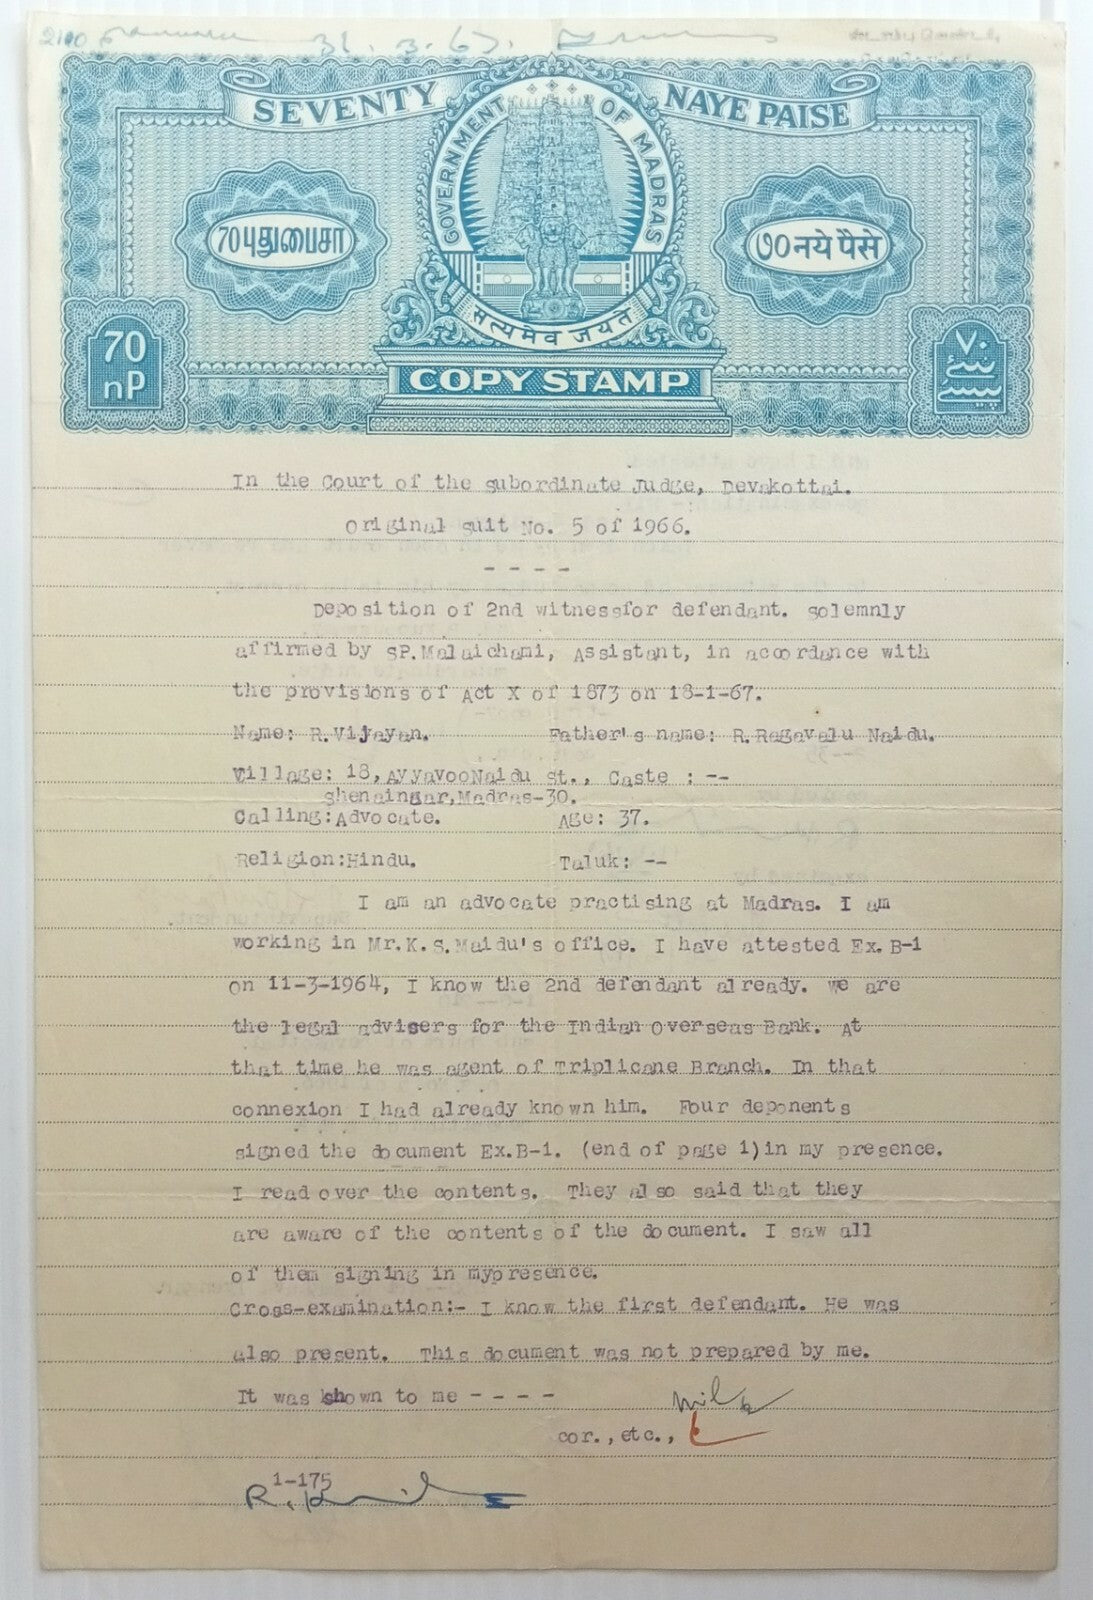 2100
31.3.67.
SEVENTY NAYE PAISE
GOVERNMENT OF MADRAS
70 புதுபைசா
७० नये पैसे
सत्यमेव जयते
70 nP
COPY STAMP
۷۰ نئے پیسے
In the Court of the subordinate Judge, Devakottai.
Original suit No. 5 of 1966.
- - - -
Deposition of 2nd witnessfor defendant. solemnly
affirmed by SP.Malaichami, Assistant, in accordance with
the provisions of Act X of 1873 on 18-1-67.
Name: R.Vijayan. Father's name: R.Ragavalu Naidu.
Village: 18,AyyavooNaidu st., Caste : --
shenaingar,Madras-30.
Calling:Advocate. Age: 37.
Religion:Hindu. Taluk: --
I am an advocate practising at Madras. I am
working in Mr.K.S.Naidu's office. I have attested Ex.B-1
on 11-3-1964, I know the 2nd defendant already. we are
the legal advisers for the Indian Overseas Bank. At
that time he was agent of Triplicane Branch. In that
connexion I had already known him. Four deponents
signed the document Ex.B-1. (end of page 1)in my presence.
I read over the contents. They also said that they
are aware of the contents of the document. I saw all
of them signing in mypresence.
Cross-examination:- I know the first defendant. He was
also present. This document was not prepared by me.
It was shown to me - - - -
Nil
cor.,etc.,
1-175